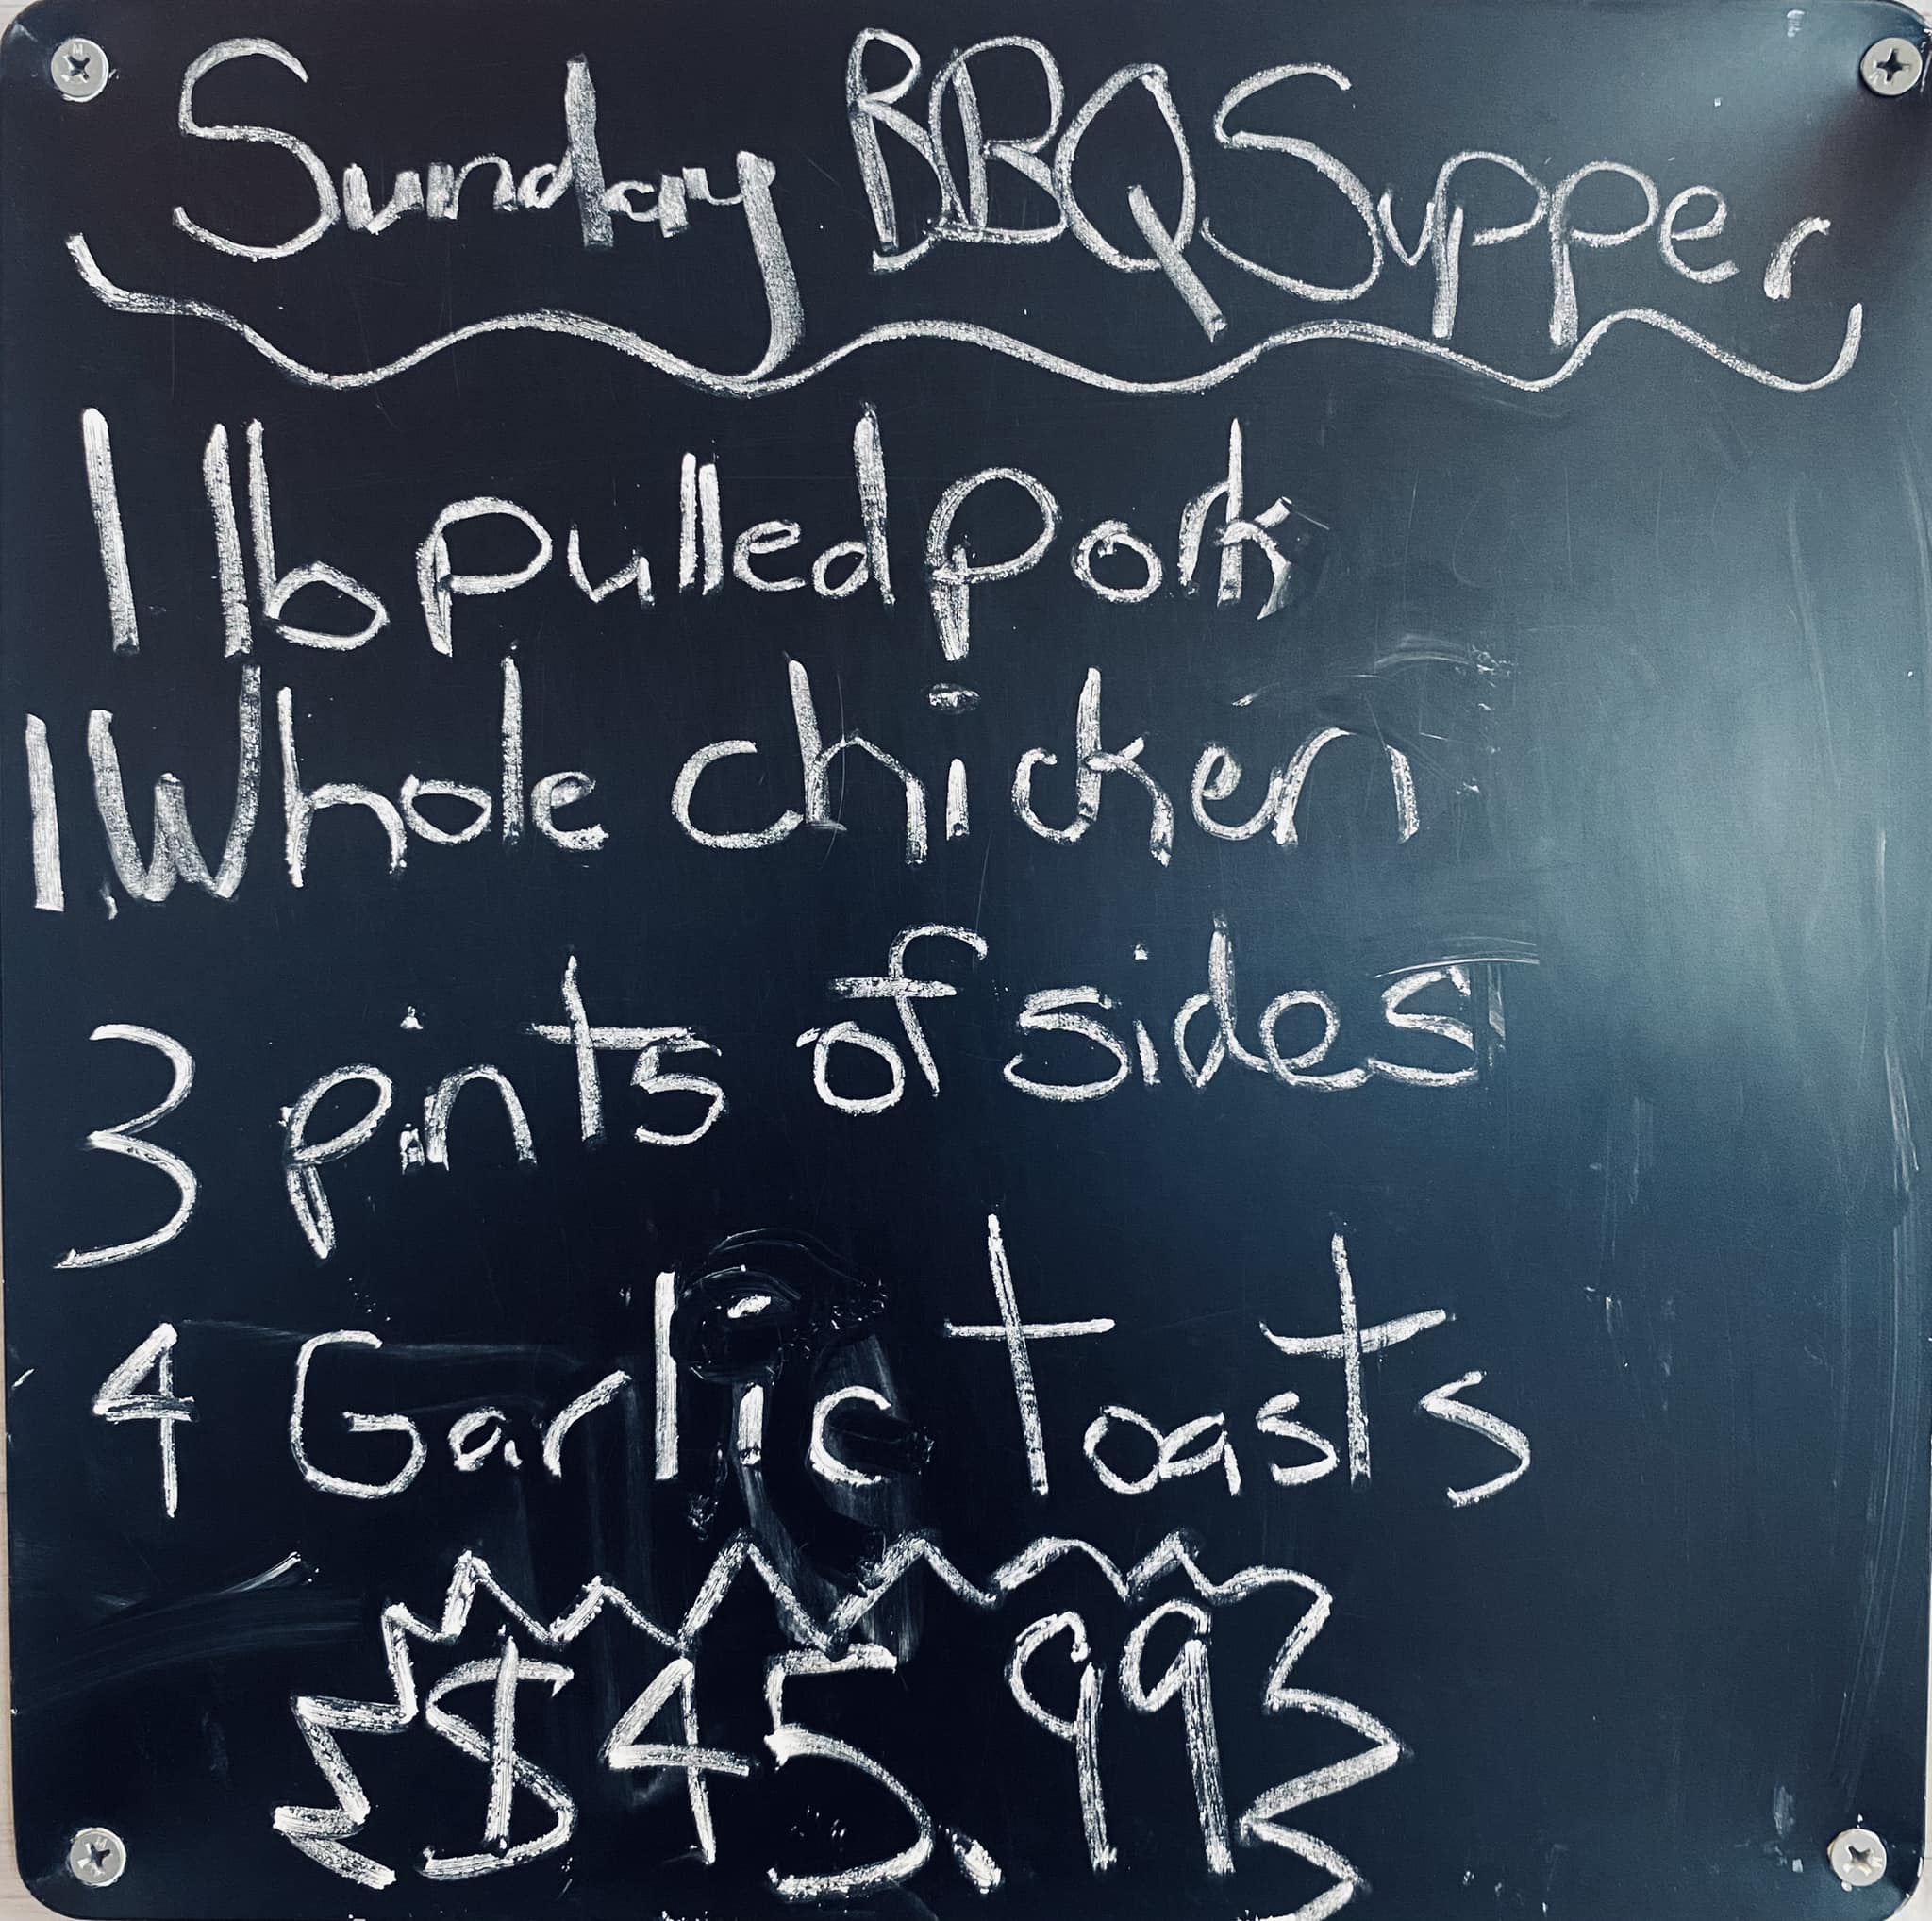 Sunday BBQ Supper
1 lb pulled pork
1 Whole chicken
3 pints of sides
4 Garlic toasts
$45.99